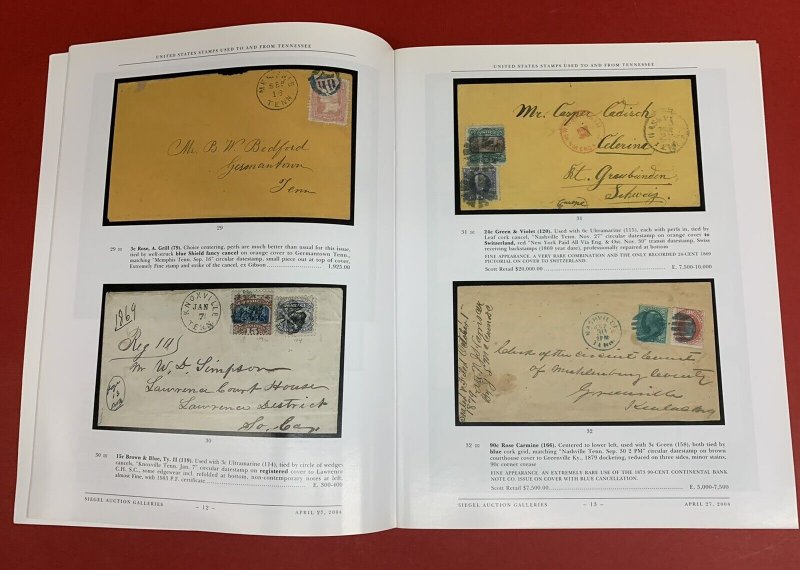 UNITED STATES STAMPS USED TO AND FROM TENNESSEE
SEP
TENN
Mr. B. W. Bedford
Germantown
Tenn
29
29 3c Rose, A. Grill (79). Choice centering, perfs are much better than usual for this issue,
tied by well-struck blue Shield fancy cancel on orange cover to Germantown Tenn.,
matching "Memphis Tenn. Sep. 18" circular datestamp, small piece out at top of cover,
Extremely Fine stamp and strike of the cancel, ex Gibson 1,925.00
1869
KNOXVILLE
JAN
7
TENN
Reg 111
Mr W. D. Simpson
Lawrence Court House
Lawrence District
So. Car
30
30 15c Brown & Blue, Ty. II (119). Used with 3c Ultramarine (114), tied by circle of wedges
cancels, "Knoxville Tenn. Jan. 7" circular datestamp on registered cover to Lawrence
C.H. S.C., some edgewear incl. refolded at bottom, non-contemporary notes at left,
almost Fine, with 1983 P.F. certificate E. 300-400
SIEGEL AUCTION GALLERIES
– 12 –
APRIL 27, 2004
UNITED STATES STAMPS USED TO AND FROM TENNESSEE
Mr. Casper Cadisch
Celerina
Kt. Graubünden
Schweiz
Europe
31
31 24c Green & Violet (120). Used with 6c Ultramarine (115), each with perfs in, tied by
Leaf cork cancel, "Nashville Tenn. Nov. 27" circular datestamp on orange cover to
Switzerland, red "New York Paid All Via Eng. & Ost. Nov. 30" transit datestamp, Swiss
receiving backstamps (1869 year date), professionally repaired and restored
FINE APPEARANCE. A VERY RARE COMBINATION AND THE ONLY RECORDED 24-CENT 1869
PICTORIAL ON COVER TO SWITZERLAND.
Scott Retail $20,000.00 E. 7,500-10,000
NASHVILLE
TENN
Clerk of the Circuit Court
of Muhlenburg County
Greenville
Kentucky
32
32 90c Rose Carmine (166). Centered to lower left, used with 3c Green (158), both tied by
blue cork grid, matching "Nashville Tenn. Sep. 30 2 PM" circular datestamp on brown
courthouse cover to Greenville Ky., 1879 docketing, reduced on three sides, minor stains,
90c corner crease
FINE APPEARANCE. AN EXTREMELY RARE USE OF THE 1873 90-CENT CONTINENTAL BANK
NOTE CO. ISSUE ON COVER WITH BLUE CANCELLATION.
Scott Retail $7,500.00 E. 5,000-7,500
SIEGEL AUCTION GALLERIES
– 13 –
APRIL 27, 2004